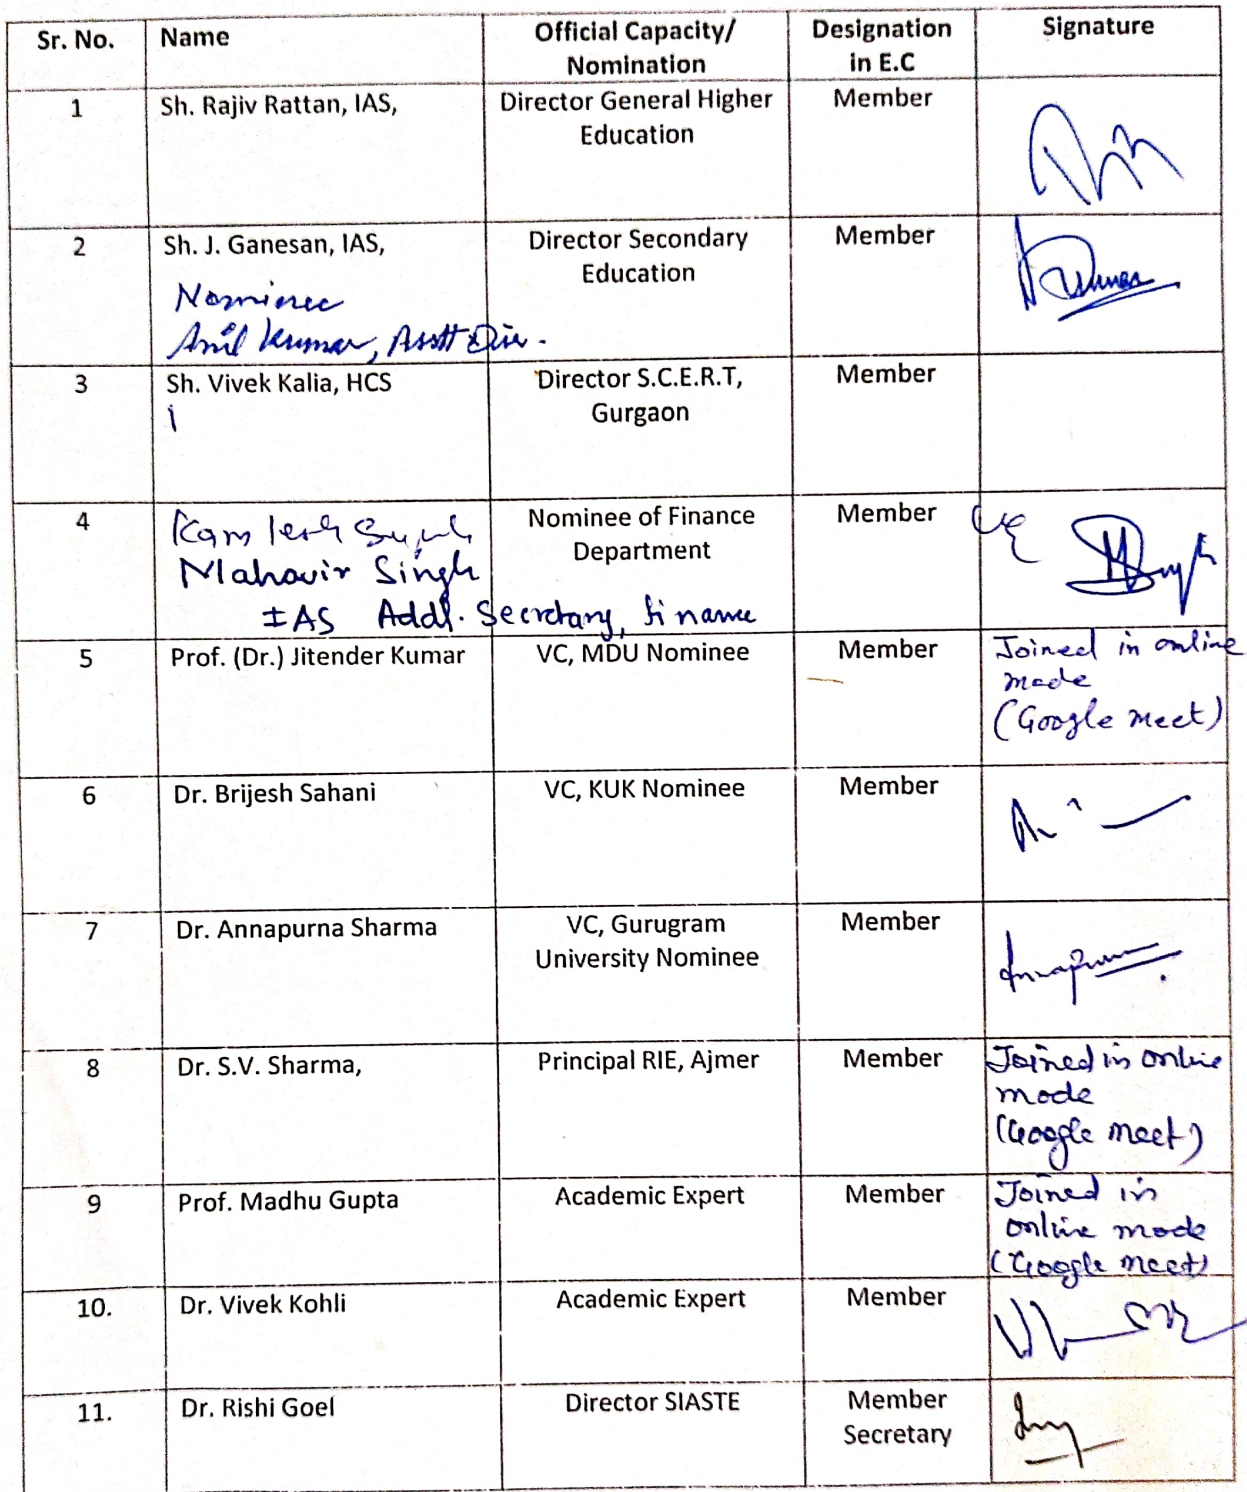 Sr. No. Name Official Capacity/ Nomination Designation in E.C Signature
1 Sh. Rajiv Rattan, IAS, Director General Higher Education Member
2 Sh. J. Ganesan, IAS, Director Secondary Education Member
Nominee
Anil Kumar, Asstt Dir.
3 Sh. Vivek Kalia, HCS Director S.C.E.R.T, Gurgaon Member
4 Kamlesh Nominee of Finance Department Member
Mahavir Singh
IAS Addl. Secretary, finance
5 Prof. (Dr.) Jitender Kumar VC, MDU Nominee Member Joined in online
mode
(Google meet)
6 Dr. Brijesh Sahani VC, KUK Nominee Member
7 Dr. Annapurna Sharma VC, Gurugram University Nominee Member
8 Dr. S.V. Sharma, Principal RIE, Ajmer Member Joined in online
mode
(Google meet)
9 Prof. Madhu Gupta Academic Expert Member Joined in
online mode
(Google meet)
10. Dr. Vivek Kohli Academic Expert Member
11. Dr. Rishi Goel Director SIASTE Member Secretary